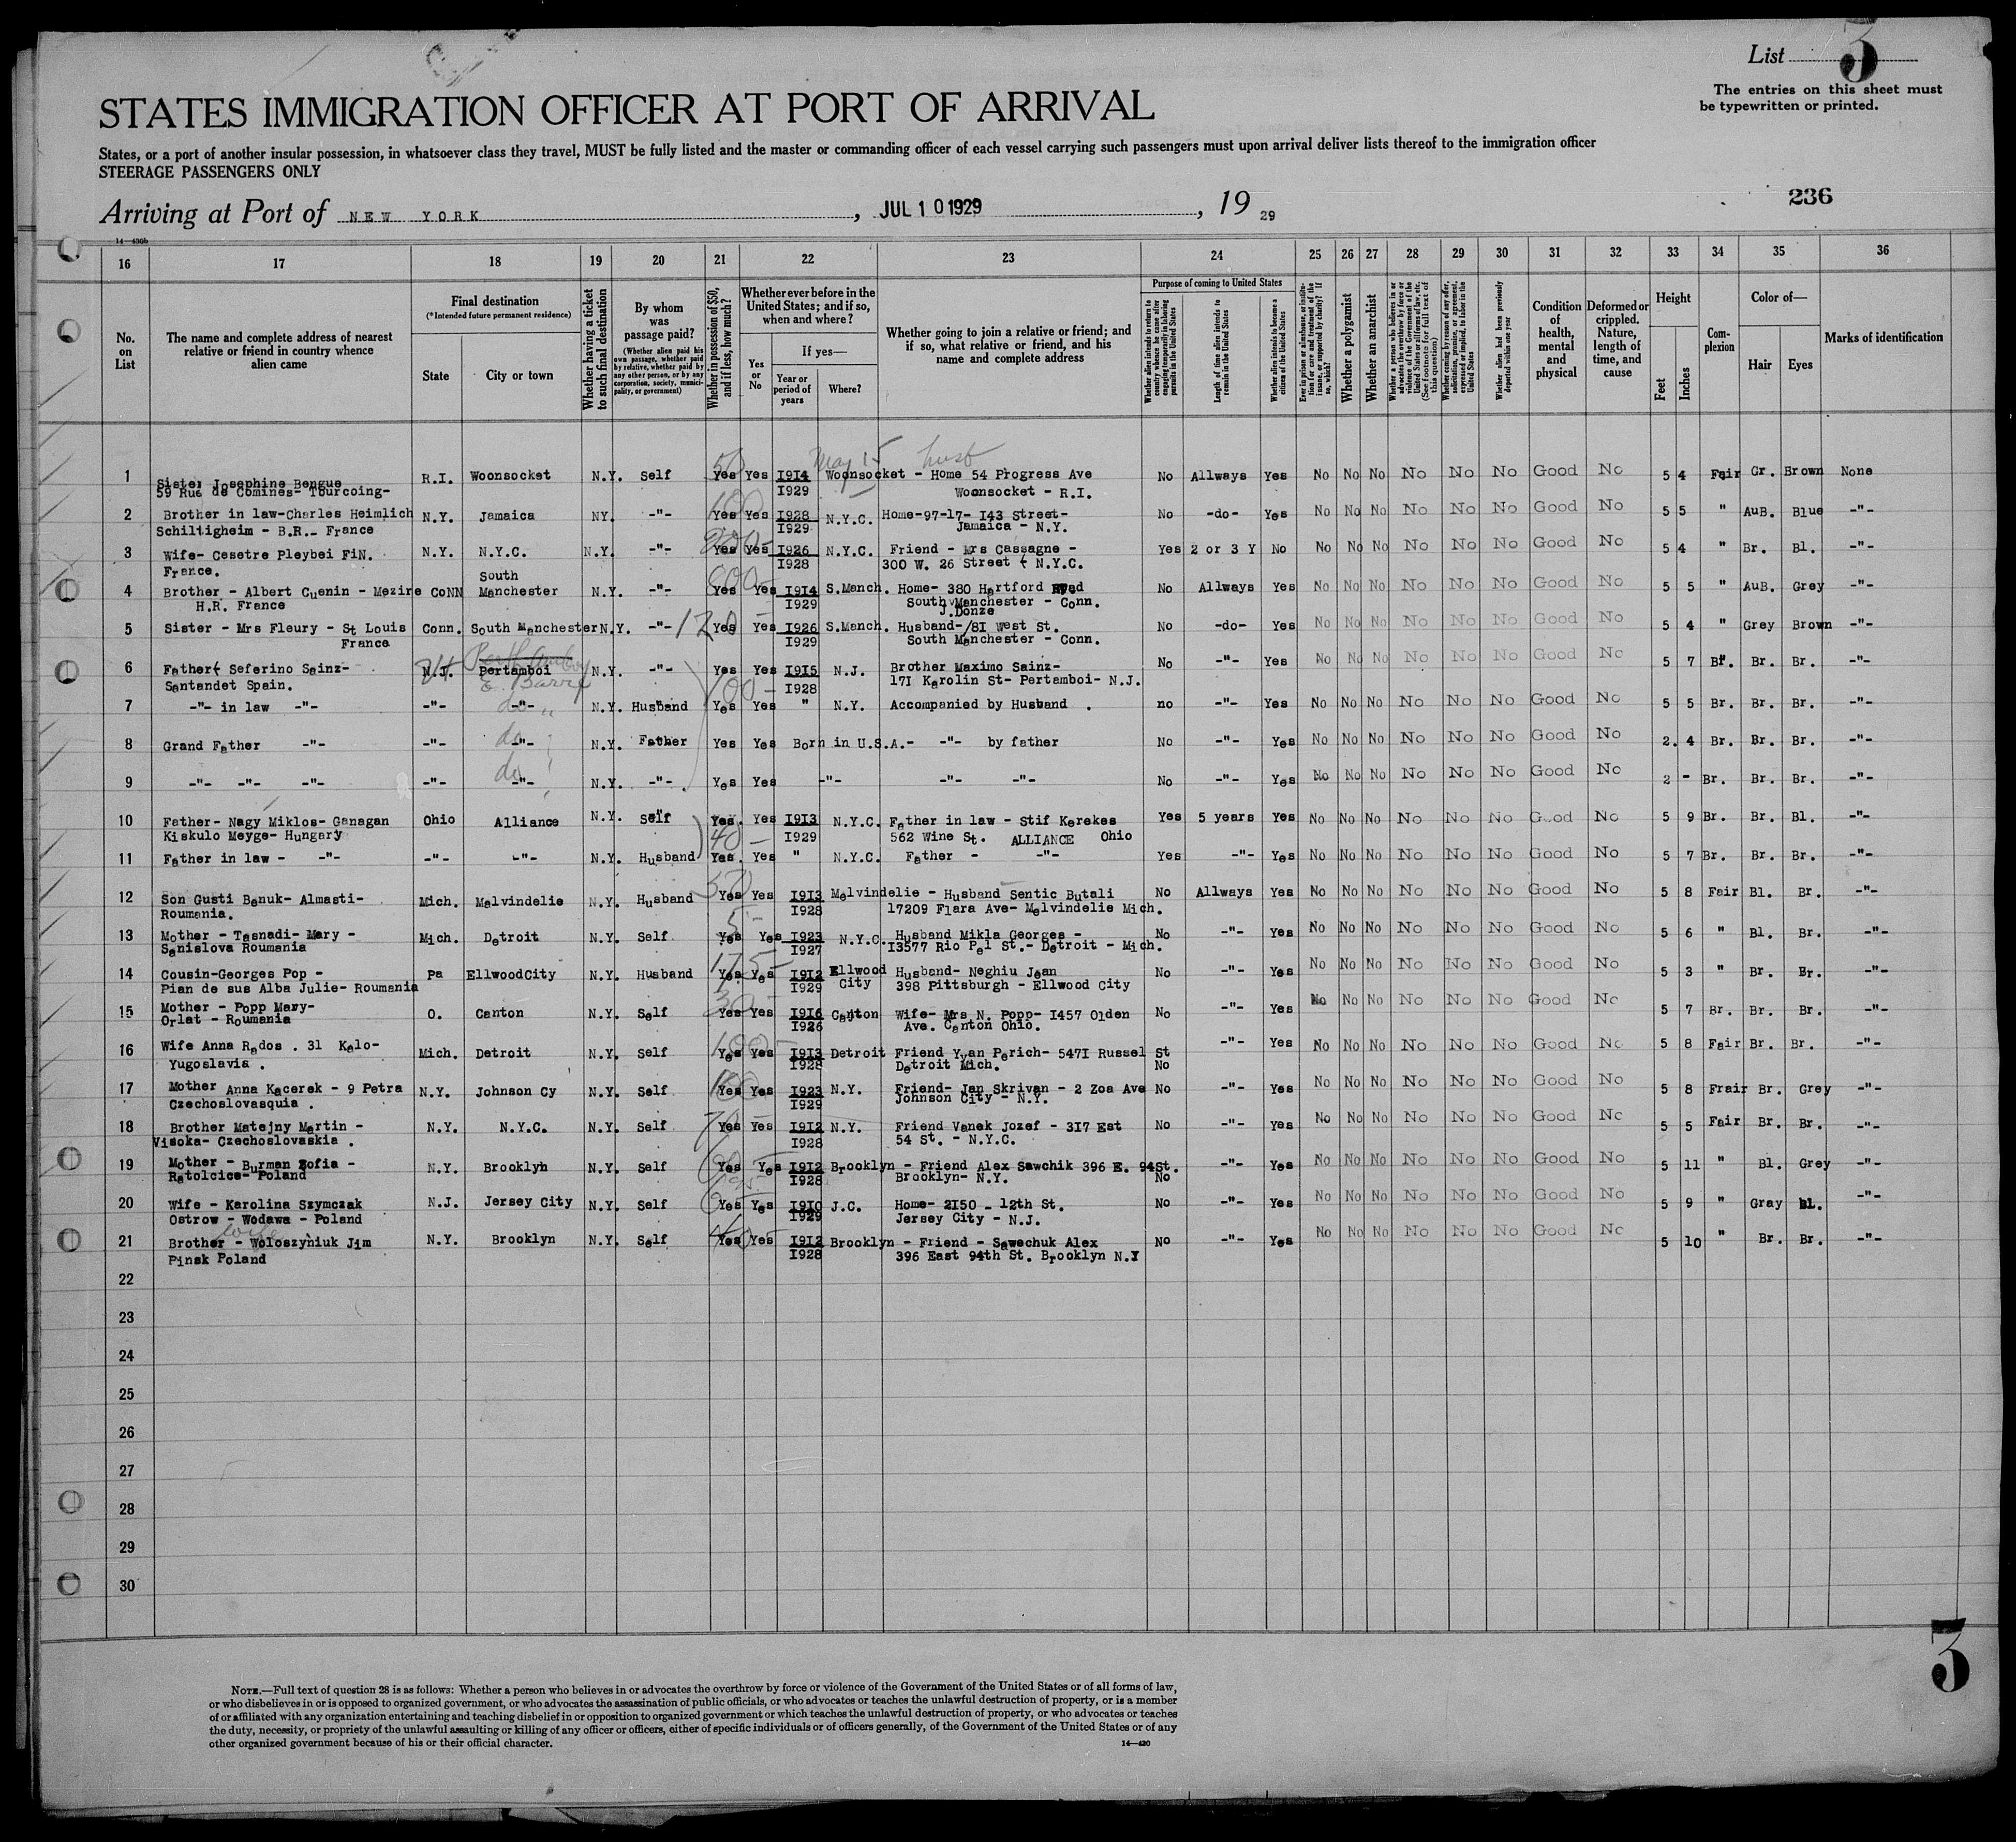 List 3
The entries on this sheet must
be typewritten or printed.
STATES IMMIGRATION OFFICER AT PORT OF ARRIVAL
States, or a port of another insular possession, in whatsoever class they travel, MUST be fully listed and the master or commanding officer of each vessel carrying such passengers must upon arrival deliver lists thereof to the immigration officer
STEERAGE PASSENGERS ONLY
Arriving at Port of NEW YORK, JUL 10 1929, 19 29
236
14-430b
16 17 18 19 20 21 22 23 24 25 26 27 28 29 30 31 32 33 34 35 36
No. on List
The name and complete address of nearest relative or friend in country whence alien came
Final destination
(*Intended future permanent residence)
State
City or town
Whether having a ticket to such final destination
By whom was passage paid?
(Whether alien paid his own passage, whether paid by relative, whether paid by any other person, or by any corporation, society, municipality, or government)
Whether in possession of $50, and if less, how much?
Whether ever before in the United States; and if so, when and where?
Yes or No
If yes—
Year or period of years
Where?
Whether going to join a relative or friend; and if so, what relative or friend, and his name and complete address
Purpose of coming to United States
Whether alien intends to return to country whence he came after engaging temporarily in laboring pursuits in the United States
Length of time alien intends to remain in the United States
Whether alien intends to become a citizen of the United States
Ever in prison or almshouse, or institution for care and treatment of the insane, or supported by charity? If so, which?
Whether a polygamist
Whether an anarchist
Whether a person who believes in or advocates the overthrow by force or violence of the Government of the United States or all forms of law, etc. (See footnote for full text of this question)
Whether coming by reason of any offer, solicitation, promise, or agreement, expressed or implied, to labor in the United States
Whether alien had been previously deported within one year
Condition of health, mental and physical
Deformed or crippled. Nature, length of time, and cause
Height
Feet
Inches
Complexion
Color of—
Hair
Eyes
Marks of identification
May 15 husb
1 Sister Josephine Bengue R.I. Woonsocket N.Y. Self 50 Yes Yes I9I4 Woonsocket - Home 54 Progress Ave No Allways Yes No No No No No No Good No 5 4 Fair Gr. Brown None
59 Rue de Comines- Tourcoing- I929 Woonsocket - R.I.
2 Brother in law-Charles Heimlich N.Y. Jamaica NY. -"- 100 Yes Yes I928 N.Y.C. Home-97-17- I43 Street- No -do- Yes No No No No No No Good No 5 5 " AuB. Blue -"-
Schiltigheim - B.R.- France I929 Jamaica - N.Y.
3 Wife- Cesetre Pleybei FiN. N.Y. N.Y.C. N.Y. -"- 200- Yes Yes I926 N.Y.C. Friend - Mrs Cassagne - Yes 2 or 3 Y No No No No No No No Good No 5 4 " Br. Bl. -"-
France. I928 300 W. 26 Street - N.Y.C.
4 Brother - Albert Cuenin - Mezire CoNN South Manchester N.Y. -"- Yes Yes I9I4 S.Manch. Home- 380 Hartford No Allways Yes No No No No No No Good No 5 5 " AuB. Grey -"-
H.R. France I929 South Manchester - Conn.
J.Donze
5 Sister - Mrs Fleury - St Louis Conn. South Manchester N.Y. -"- 120 Yes Yes I926 S.Manch. Husband-/8I West St. No -do- Yes No No No No No No Good No 5 4 " Grey Brown -"-
France I929 South Manchester - Conn.
Perth Amboy
6 Father Seferino Sainz- N.J. Pertamboi N.Y. -"- Yes Yes I9I5 N.J. Brother Maximo Sainz- No -"- Yes No No No No No No Good No 5 7 Br. Br. Br. -"-
Santandet Spain. E. Barre 100- I928 I7I Karolin St- Pertamboi- N.J.
7 -"- in law -"- -"- do -"- N.Y. Husband Yes Yes " N.Y. Accompanied by Husband . no -"- Yes No No No No No No Good No 5 5 Br. Br. Br. -"-
8 Grand Father -"- -"- do -"- N.Y. Father Yes Yes Born in U.S.A.- -"- by father No -"- Yes No No No No No No Good No 2. 4 Br. Br. Br. -"-
9 -"- -"- -"- -"- do -"- N.Y. -"- Yes Yes -"- -"- -"- No -"- Yes No No No No No No Good No 2 - Br. Br. Br. -"-
10 Father- Nagy Miklos- Ganagan Ohio Alliance N.Y. Self Yes. Yes I9I3 N.Y.C. Father in law - Stif Kerekes Yes 5 years Yes No No No No No No Good No 5 9 Br. Br. Bl. -"-
Kiskulo Meyge- Hungary 40- I929 562 Wine St. ALLIANCE Ohio
11 Father in law - -"- -"- -"- N.Y. Husband Yes. Yes " N.Y.C. Father - -"- Yes -"- Yes No No No No No No Good No 5 7 Br. Br. Br. -"-
12 Son Gusti Benuk- Almasti- Mich. Melvindelie N.Y. Husband Yes Yes I9I3 Melvindelie - Husband Sentic Butali No Allways Yes No No No No No No Good No 5 8 Fair Bl. Br. -"-
Roumania. I928 I7209 Flara Ave- Melvindelie Mich.
13 Mother - Tasnadi- Mary - Mich. Detroit N.Y. Self 5- Yes Yes I923 N.Y.C. Husband Mikla Georges - No -"- Yes No No No No No No Good No 5 6 " Bl. Br. -"-
Sanislova Roumania I927 I3577 Rio Pel St.- Detroit - Mich.
14 Cousin-Georges Pop - Pa EllwoodCity N.Y. Husband 175- Yes. Yes I9I2 Ellwood City Husband- Neghiu Jean No -"- Yes No No No No No No Good No 5 3 " Br. Br. -"-
Pian de sus Alba Julie- Roumania I929 398 Pittsburgh - Ellwood City
15 Mother - Popp Mary- O. Canton N.Y. Self 30- Yes Yes I9I6 Canton Wife- Mrs N. Popp- I457 Olden No -"- Yes No No No No No No Good No 5 7 Br. Br. Br. -"-
Orlat - Roumania I926 Ave. Canton Ohio.
16 Wife Anna Rados . 3I Kalo- Mich. Detroit N.Y. Self 100- Yes Yes I9I3 Detroit Friend Yvan Perich- 547I Russel St -"- Yes No No No No No No Good No 5 8 Fair Br. Br. -"-
Yugoslavia . I928 Detroit Mich. No
17 Mother Anna Kacerek - 9 Petra N.Y. Johnson Cy N.Y. Self Yes Yes I923 N.Y. Friend- Jan Skrivan - 2 Zoa Ave No -"- Yes No No No No No No Good No 5 8 Frair Br. Grey -"-
Czechoslovasquia . I929 Johnson City - N.Y.
18 Brother Matejny Martin - N.Y. N.Y.C. N.Y. Self 70- Yes Yes I9I2 N.Y. Friend Vanek Jozef - 3I7 Est No -"- Yes No No No No No No Good No 5 5 Fair Br. Br. -"-
Visoka- Czechoslovaskia . I928 54 St. - N.Y.C.
19 Mother - Burman Zofia - N.Y. Brooklyn N.Y. Self 60- Yes Yes I9I2 Brooklyn - Friend Alex Sawchik 396 E. 94St. -"- Yes No No No No No No Good No 5 11 " Bl. Grey -"-
Ratolcice- Poland I928 Brooklyn- N.Y. No
20 Wife - Karolina Szymczak N.J. Jersey City N.Y. Self Yes Yes I9I0 J.C. Home- 2I50 - I2th St. No -"- Yes No No No No No No Good No 5 9 " Gray Bl. -"-
Ostrow - Wodawa - Poland I929 Jersey City - N.J.
wife
21 Brother - Woloszyniuk Jim N.Y. Brooklyn N.Y. Self 40- Yes Yes I9I2 Brooklyn - Friend - Sawechuk Alex No -"- Yes No No No No No No Good No 5 10 " Br. Br. -"-
Pinsk Poland I928 396 East 94th St. Brooklyn N.Y
22
23
24
25
26
27
28
29
30
3
NOTE.—Full text of question 28 is as follows: Whether a person who believes in or advocates the overthrow by force or violence of the Government of the United States or of all forms of law,
or who disbelieves in or is opposed to organized government, or who advocates the assassination of public officials, or who advocates or teaches the unlawful destruction of property, or is a member
of or affiliated with any organization entertaining and teaching disbelief in or opposition to organized government or which teaches the unlawful destruction of property, or who advocates or teaches
the duty, necessity, or propriety of the unlawful assaulting or killing of any officer or officers, either of specific individuals or of officers generally, of the Government of the United States or of any
other organized government because of his or their official character.
14-430